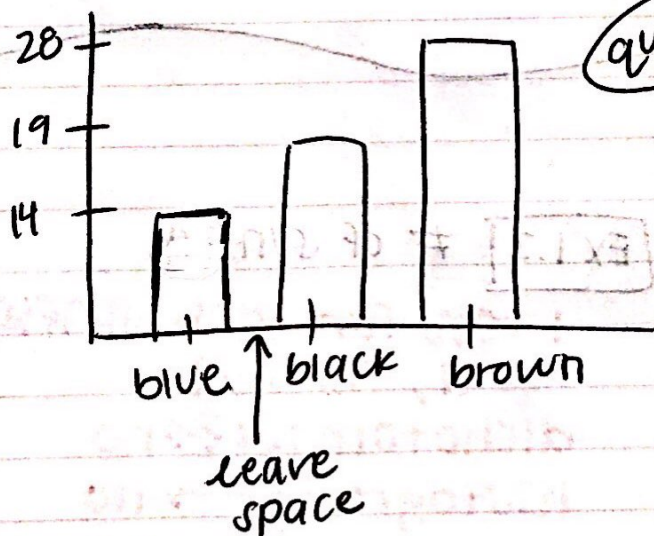 28
19
14
blue
black
brown
leave
space